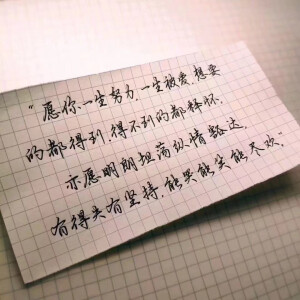 “愿你一生努力,一生被爱,想要
的都得到,得不到的都释怀,
亦愿明朗坦荡纵情豁达,
有得失有坚持,能哭能笑能尽欢”